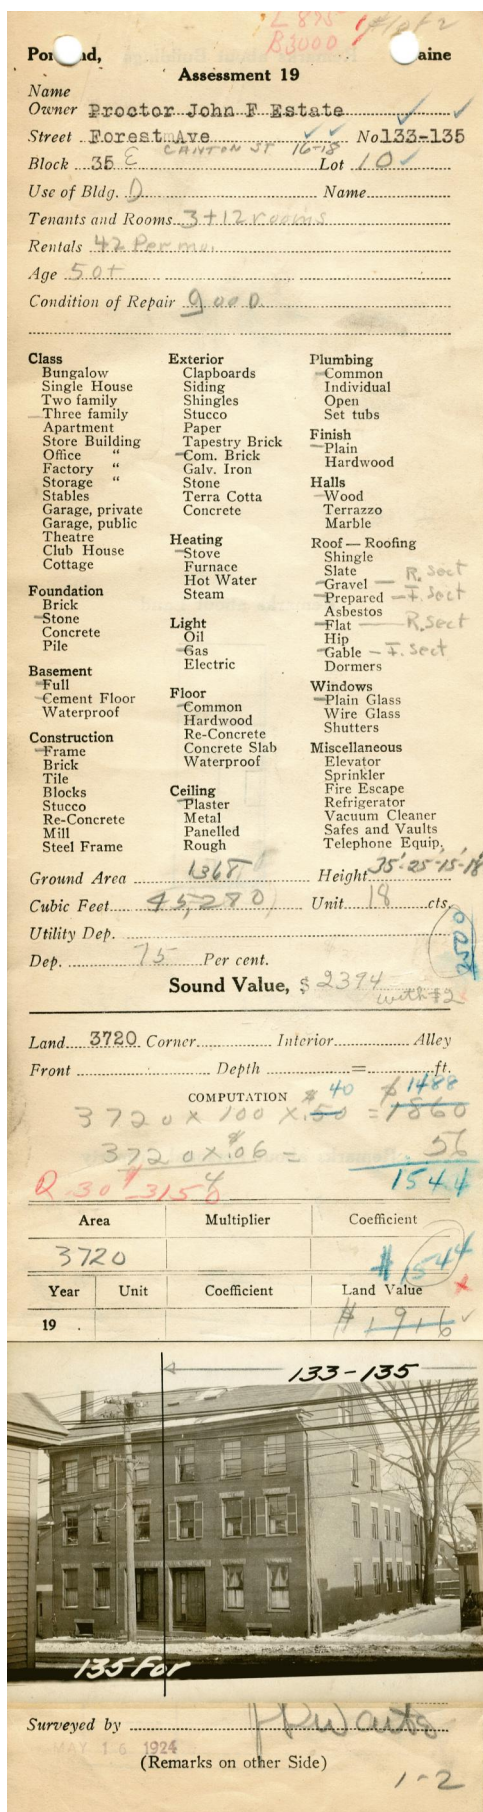 L 895
B3000
1 of 2
Portland, Maine
Assessment 19
Name
Owner Proctor John F Estate
Street Forest Ave No 133-135
CANTON ST 16-18
Block 35 E Lot 10
Use of Bldg. D Name
Tenants and Rooms 3+12 rooms
Rentals 42 Per mo.
Age 50+
Condition of Repair good
Class
Bungalow
Single House
Two family
Three family
Apartment
Store Building
Office "
Factory "
Storage "
Stables
Garage, private
Garage, public
Theatre
Club House
Cottage
Foundation
Brick
Stone
Concrete
Pile
Basement
Full
Cement Floor
Waterproof
Construction
Frame
Brick
Tile
Blocks
Stucco
Re-Concrete
Mill
Steel Frame
Exterior
Clapboards
Siding
Shingles
Stucco
Paper
Tapestry Brick
Com. Brick
Galv. Iron
Stone
Terra Cotta
Concrete
Heating
Stove
Furnace
Hot Water
Steam
Light
Oil
Gas
Electric
Floor
Common
Hardwood
Re-Concrete
Concrete Slab
Waterproof
Ceiling
Plaster
Metal
Panelled
Rough
Plumbing
Common
Individual
Open
Set tubs
Finish
Plain
Hardwood
Halls
Wood
Terrazzo
Marble
Roof — Roofing
Shingle
Slate
Gravel — R. Sect
Prepared — F. Sect
Asbestos
Flat — R. Sect
Hip
Gable — F. Sect
Dormers
Windows
Plain Glass
Wire Glass
Shutters
Miscellaneous
Elevator
Sprinkler
Fire Escape
Refrigerator
Vacuum Cleaner
Safes and Vaults
Telephone Equip.
Ground Area 1368 Height 35'-25'-15'-18'
Cubic Feet 45,280 Unit 18 cts.
Utility Dep.
Dep. 75 Per cent.
Sound Value, $ 2394
with #2
Land 3720 Corner Interior Alley
Front Depth = ft.
COMPUTATION $ 40 $ 1488
3720 x 100 x .50 = 1860
3720 x .06 = 56
4 1544
Area Multiplier Coefficient
3720 $ 1544
Year Unit Coefficient Land Value
19 $ 1916
133-135
135 For
Surveyed by
MAY 16 1924
(Remarks on other Side)
1-2